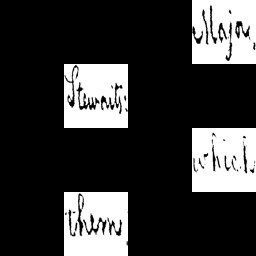 Major,
Stewarts:
which
them,